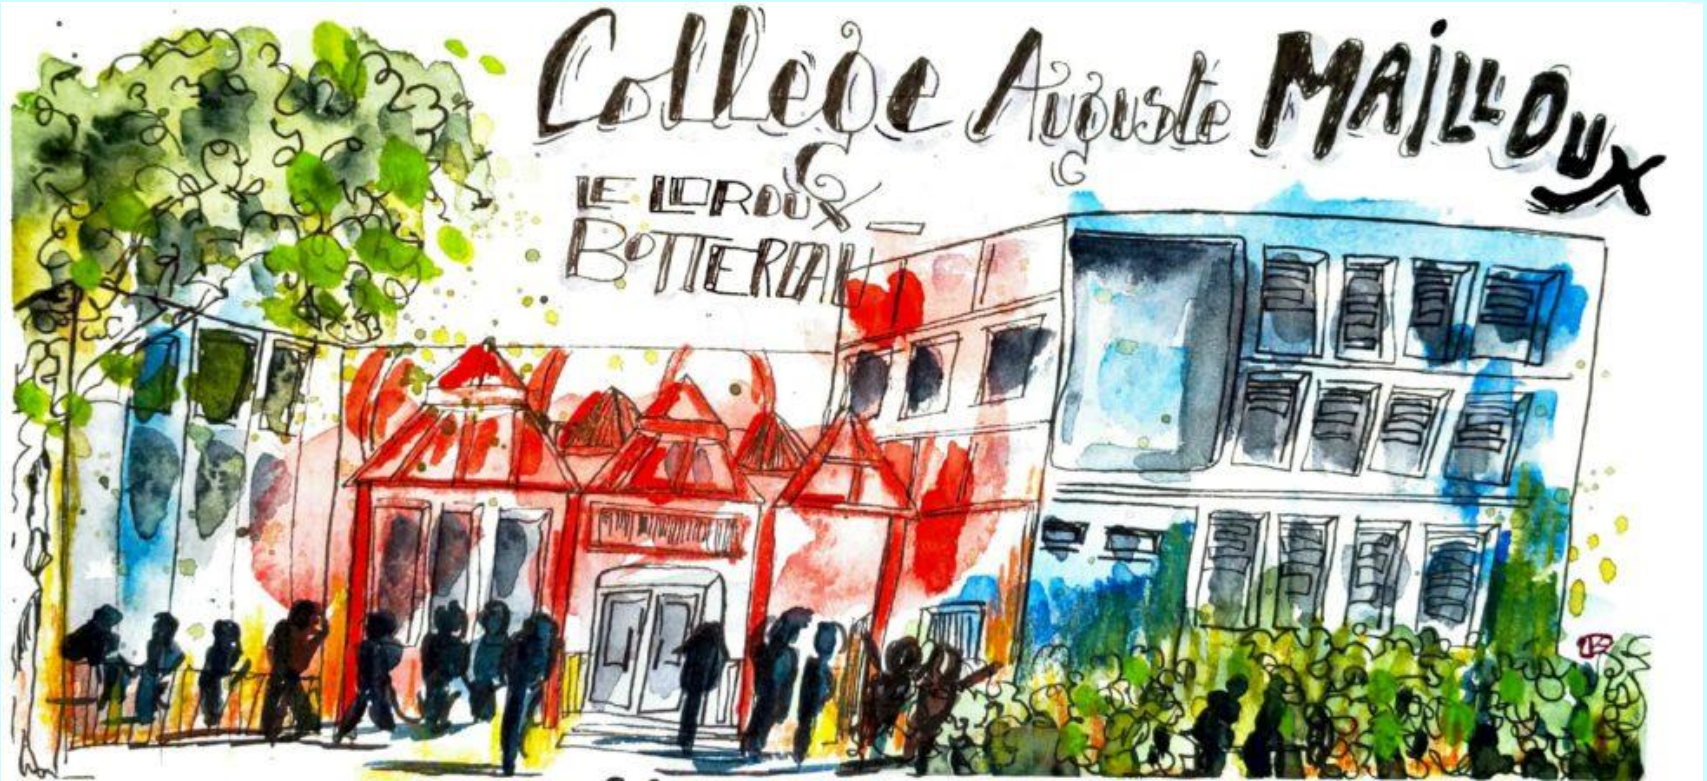 Collège Auguste MAiLLOUX
LE LOROUX
BOTTEREAU